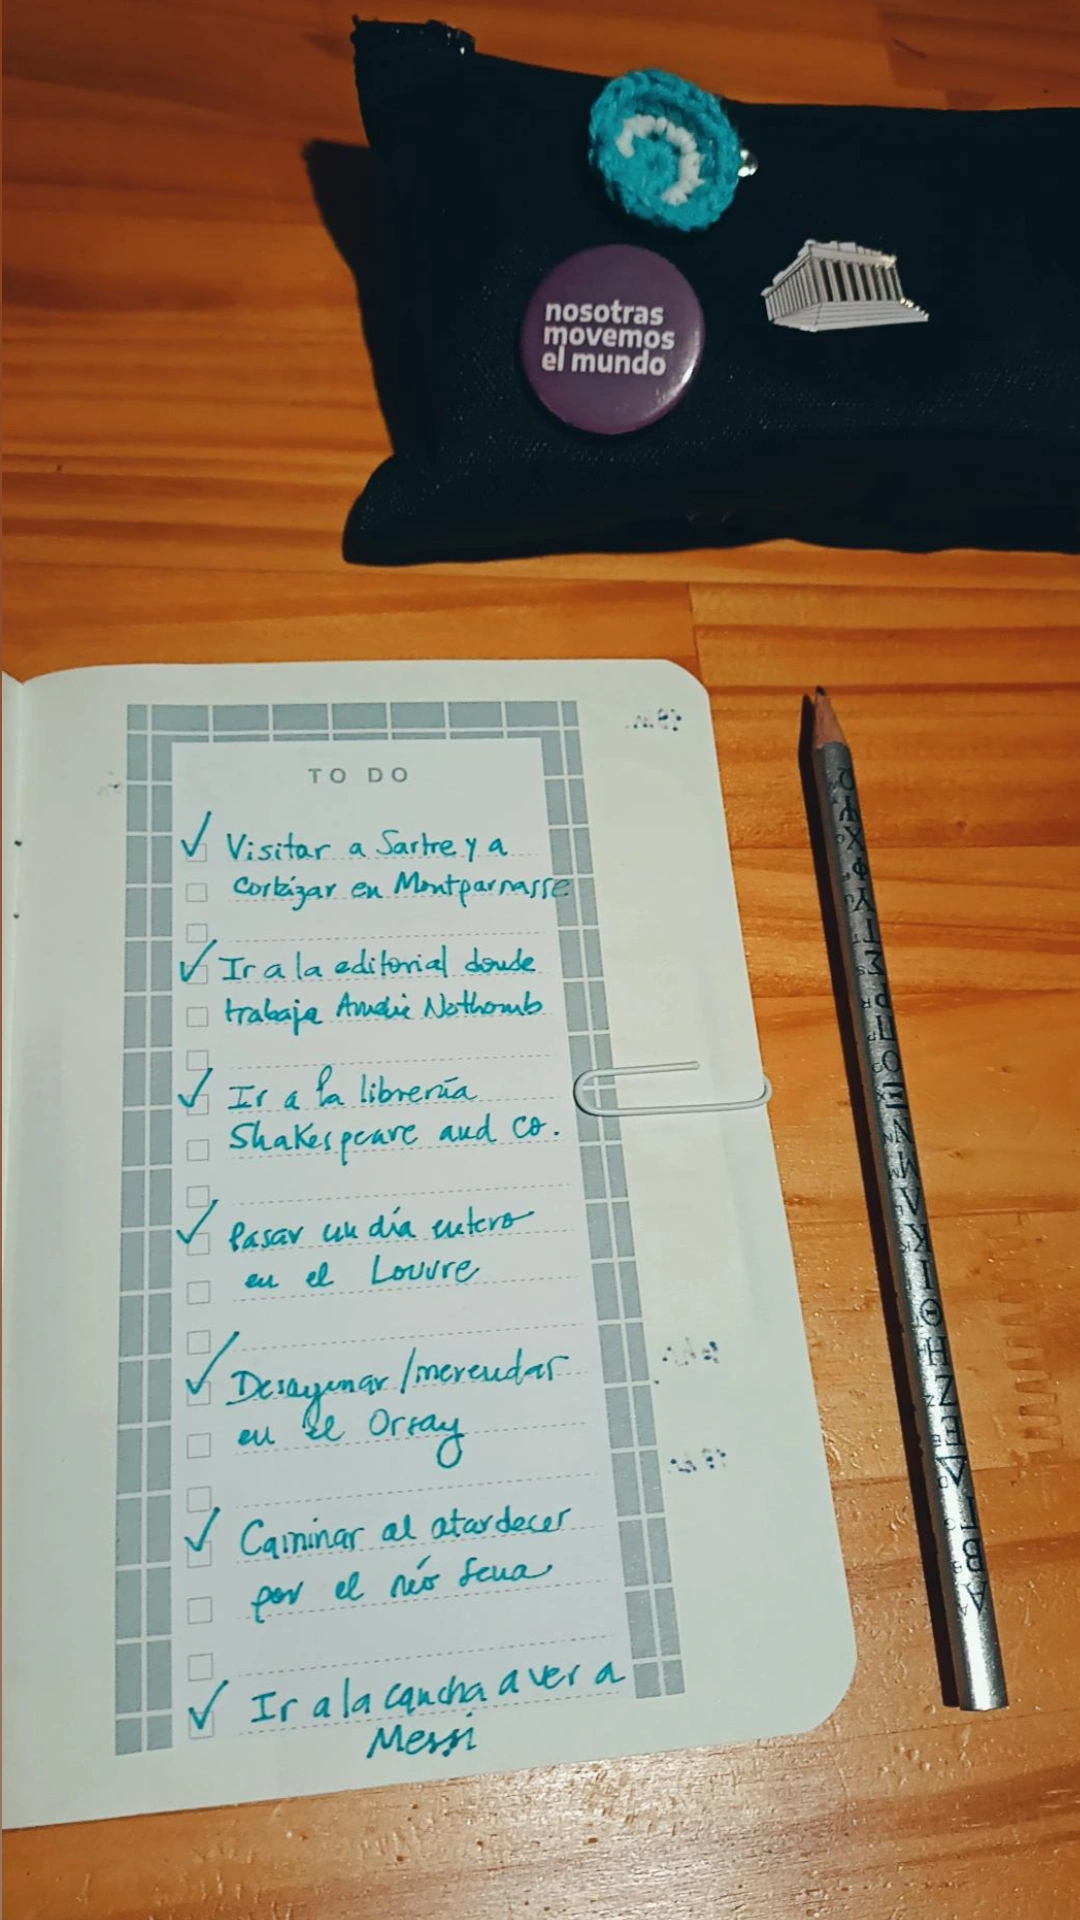 nosotras
movemos
el mundo
TO DO
Visitar a Sartre y a
Cortázar en Montparnasse
Ir a la editorial donde
trabaja Amélie Nothomb
Ir a la librería
Shakespeare and Co.
Pasar un día entero
en el Louvre
Desayunar/merendar
en el Orsay
Caminar al atardecer
por el río Sena
Ir a la cancha a ver a
Messi
Α Β Γ Δ Ε Ζ Η Θ Ι Κ Λ Μ Ν Ξ Ο Π Ρ Σ Τ Υ Φ Χ Ψ Ω